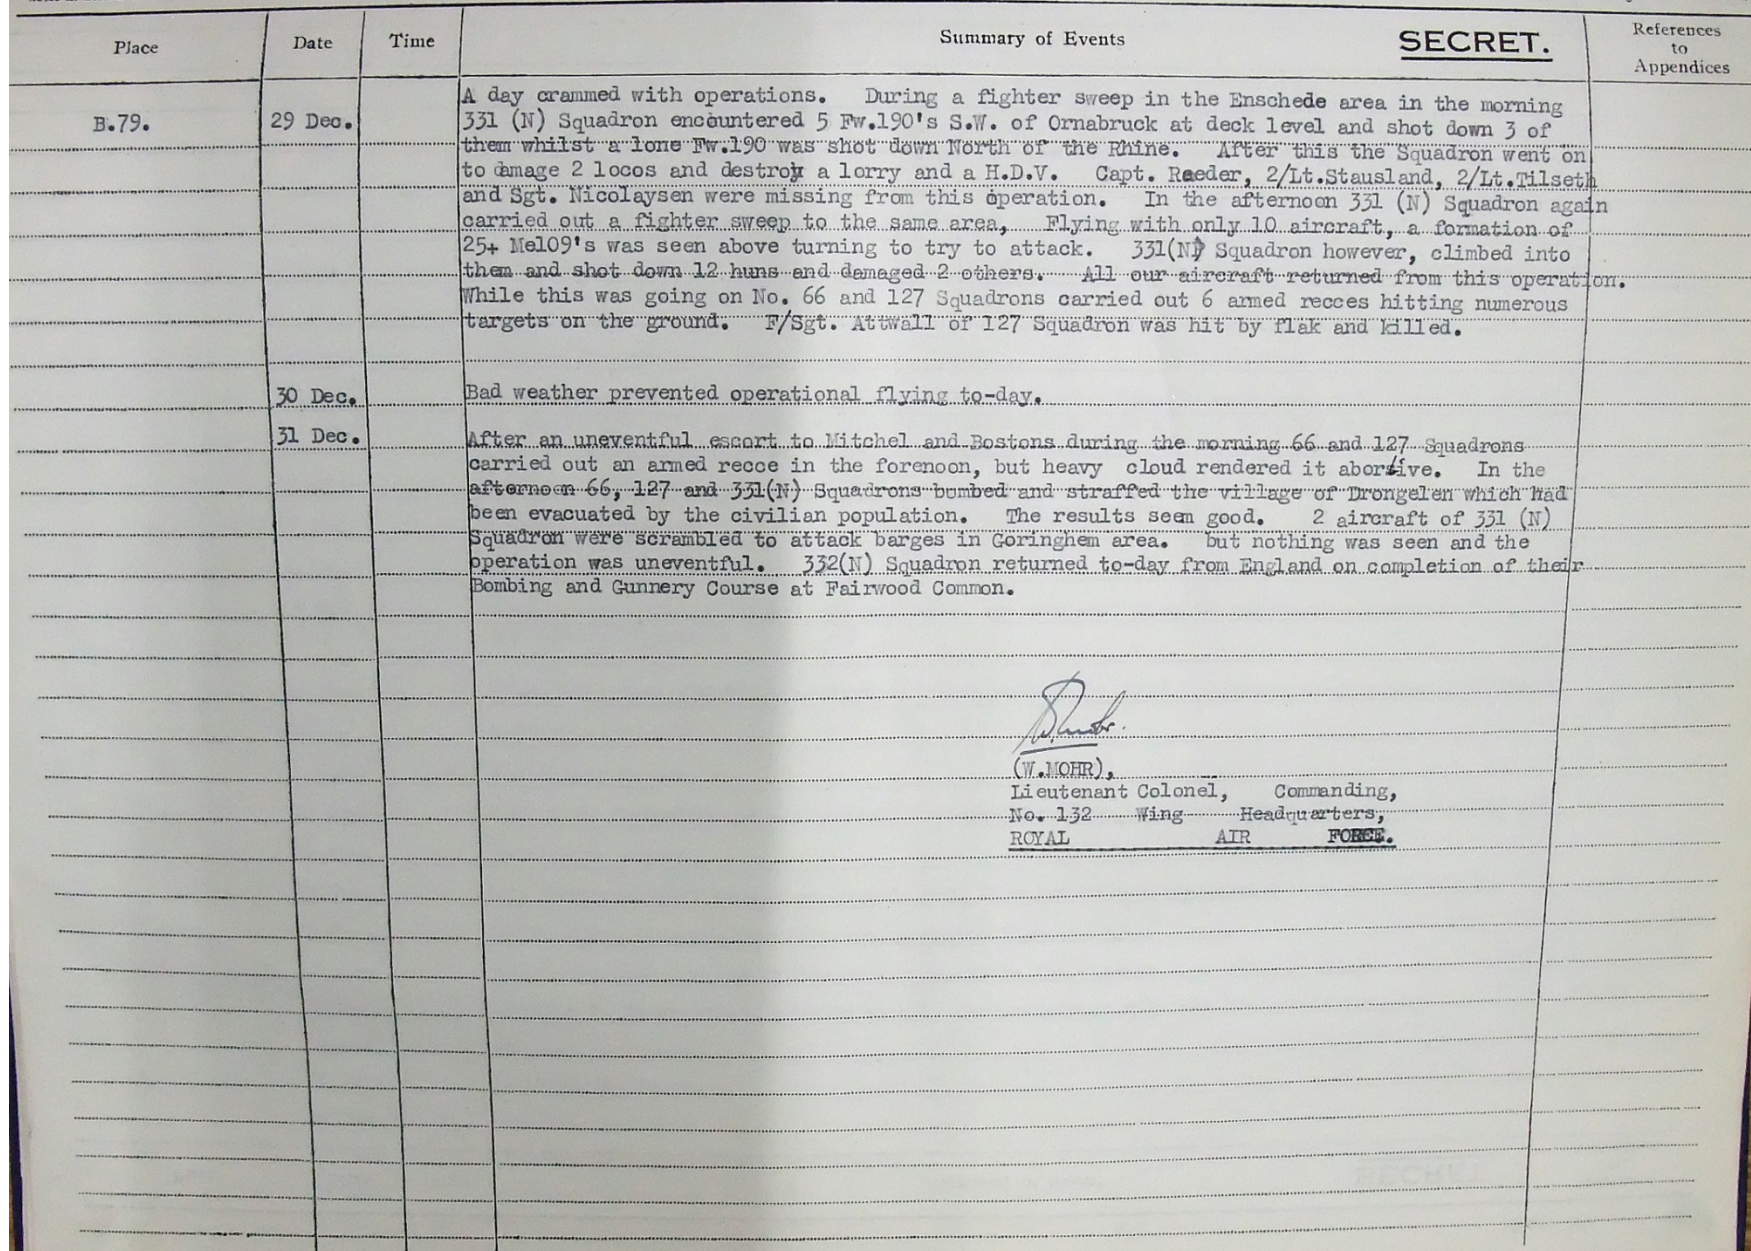 Place Date Time Summary of Events SECRET. References
to
Appendices
B.79. 29 Dec. A day crammed with operations. During a fighter sweep in the Enschede area in the morning
331 (N) Squadron encountered 5 Fw.190's S.W. of Ornabruck at deck level and shot down 3 of
them whilst a lone Fw.190 was shot down North of the Rhine. After this the Squadron went on
to damage 2 locos and destroy a lorry and a H.D.V. Capt. Raeder, 2/Lt.Stausland, 2/Lt.Tilseth
and Sgt. Nicolaysen were missing from this operation. In the afternoon 331 (N) Squadron again
carried out a fighter sweep to the same area, Flying with only 10 aircraft, a formation of
25+ Me109's was seen above turning to try to attack. 331(N) Squadron however, climbed into
them and shot down 12 huns and damaged 2 others. All our aircraft returned from this operation.
While this was going on No. 66 and 127 Squadrons carried out 6 armed recces hitting numerous
targets on the ground. F/Sgt. Attwall of 127 Squadron was hit by flak and killed.
30 Dec. Bad weather prevented operational flying to-day.
31 Dec. After an uneventful escort to Mitchel and Bostons during the morning 66 and 127 Squadrons
carried out an armed recce in the forenoon, but heavy cloud rendered it abortive. In the
afternoon 66, 127 and 331(N) Squadrons bombed and straffed the village of Drongelen which had
been evacuated by the civilian population. The results seem good. 2 aircraft of 331 (N)
Squadron were scrambled to attack barges in Goringhem area. but nothing was seen and the
operation was uneventful. 332(N) Squadron returned to-day from England on completion of their
Bombing and Gunnery Course at Fairwood Common.
(W.MOHR),
Lieutenant Colonel, Commanding,
No. 132 Wing Headquarters,
ROYAL AIR FORCE.